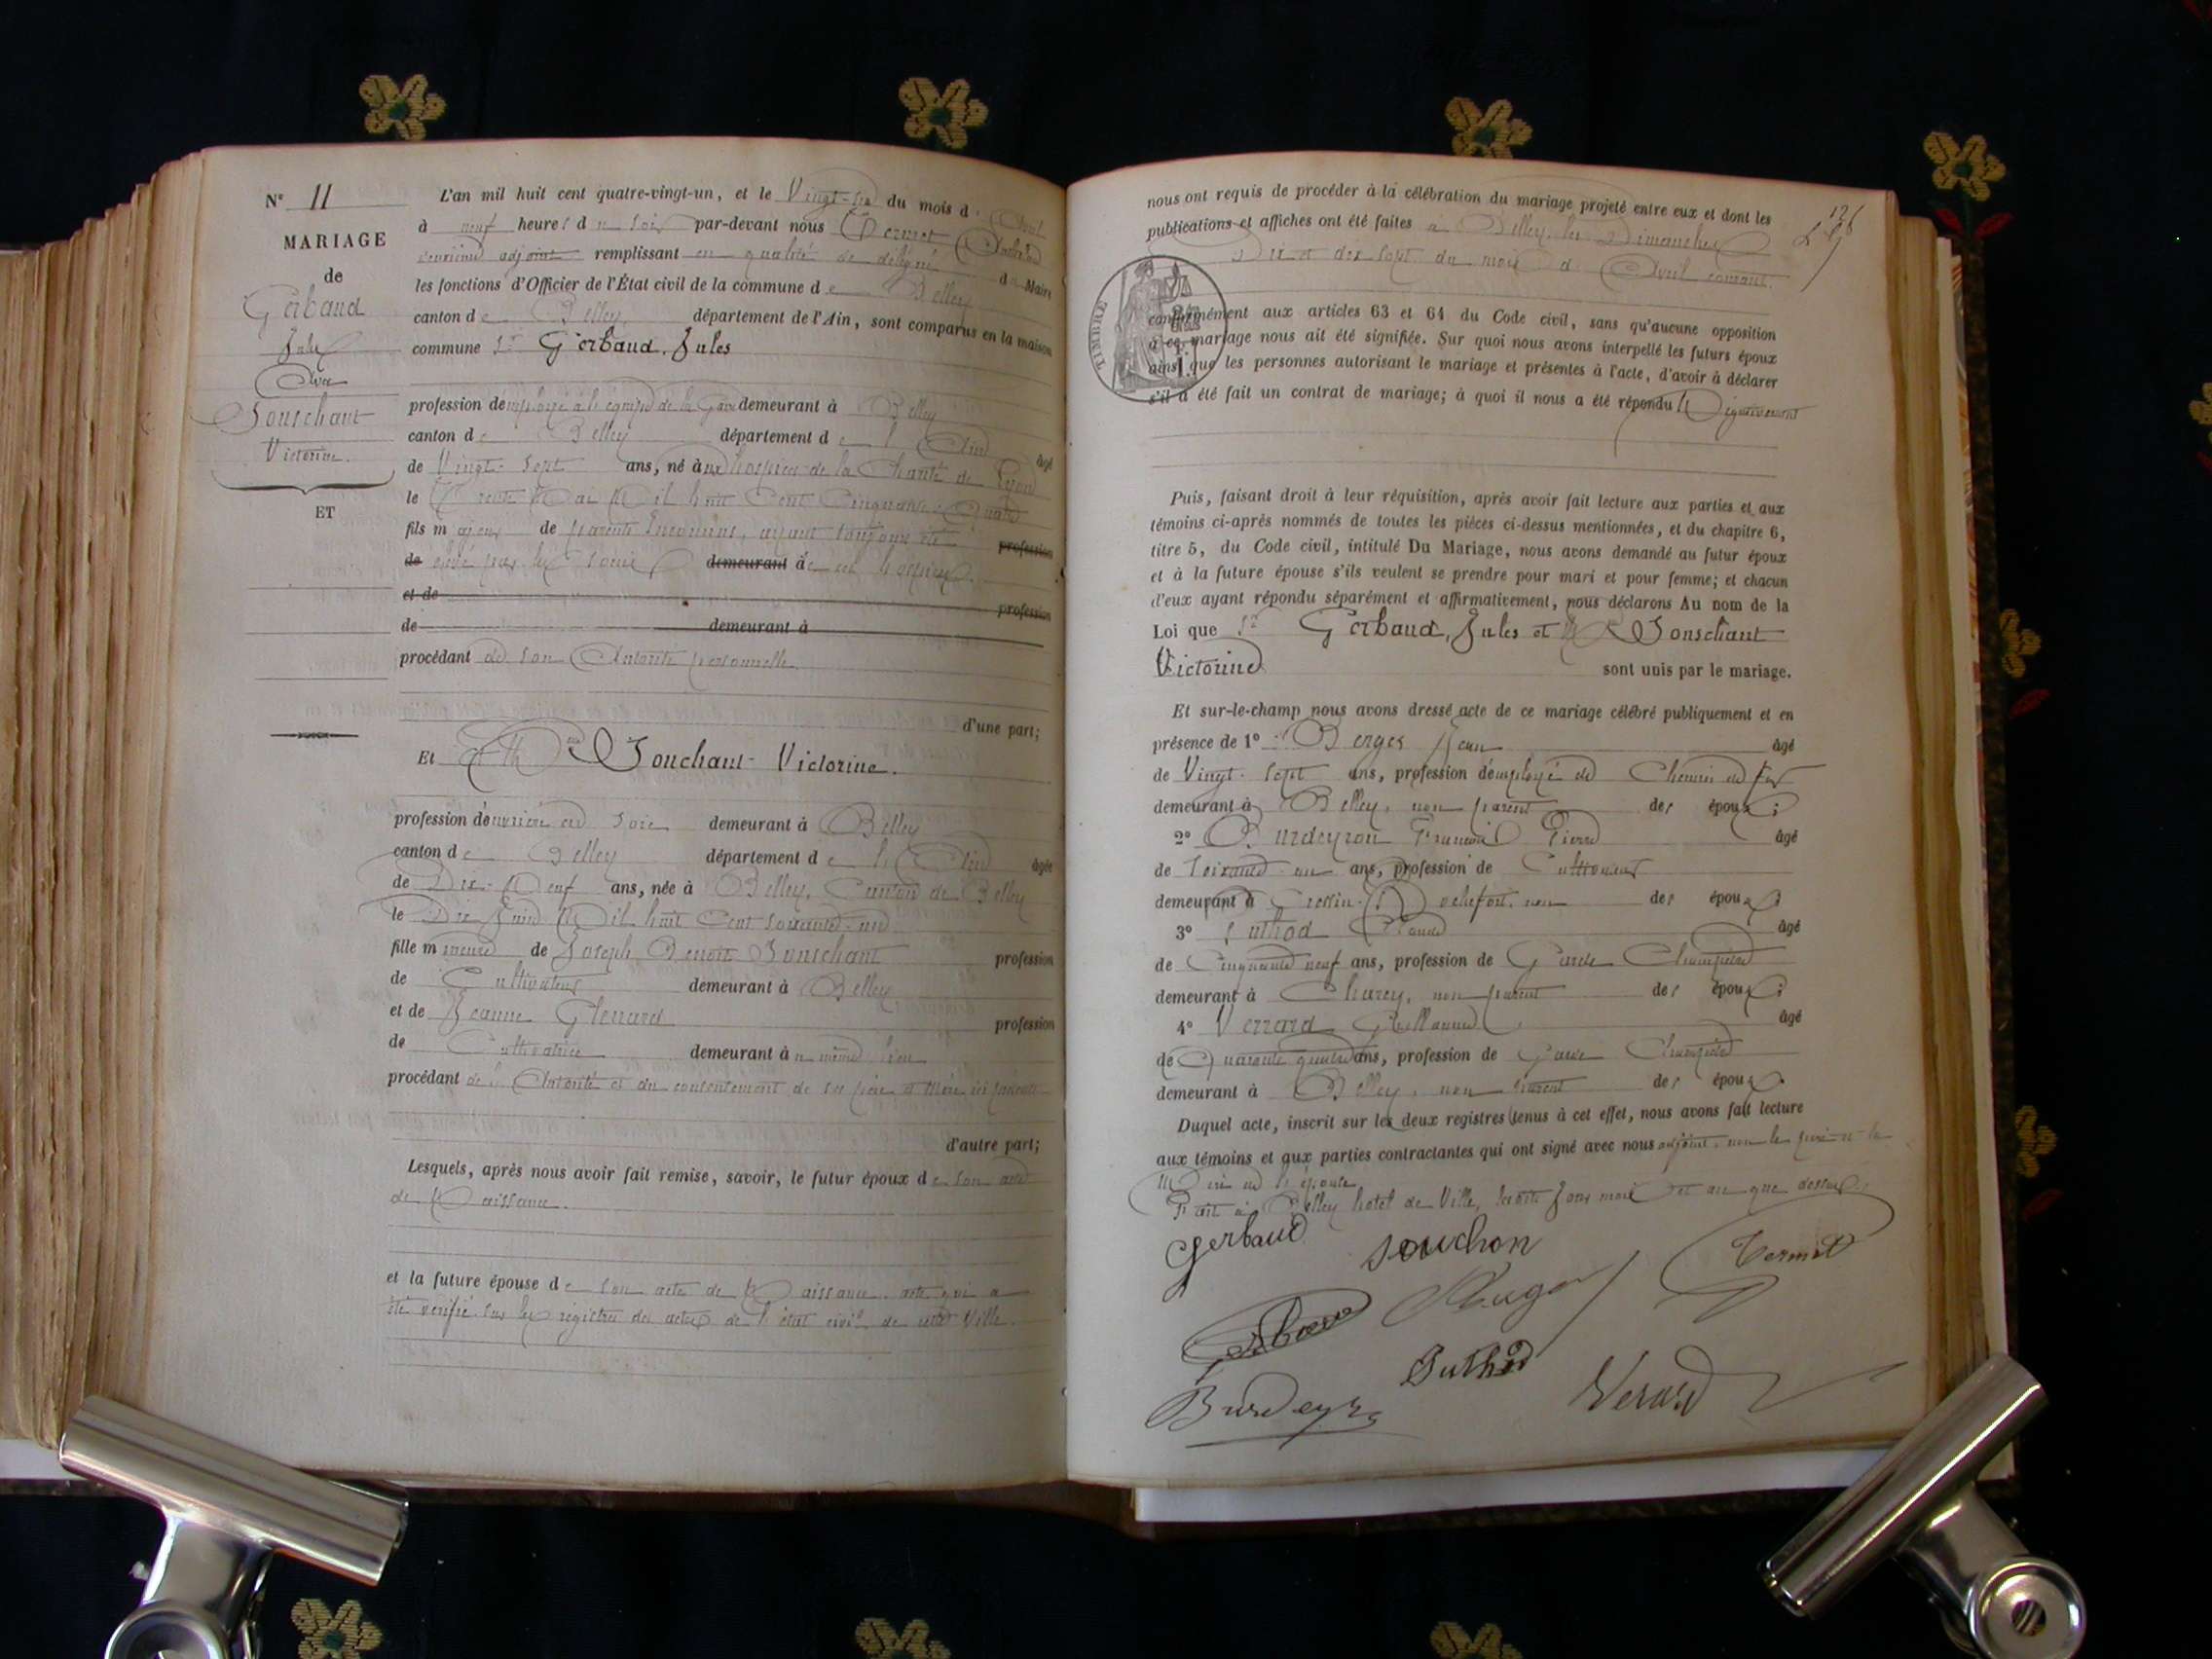 N° 11
MARIAGE
de
Gerbaud
Jules
Avec
Souschant
Victorine.
ET
L'an mil huit cent quatre-vingt-un, et le Vingt-six du mois d'Avril
à neuf heures du soir par-devant nous Vermet
deuxième adjoint remplissant en qualité de délégué du Maire
les fonctions d'Officier de l'État civil de la commune de Belley
canton de Belley département de l'Ain, sont comparus en la maison
commune Sr Gerbaud, Jules
profession d'employé à la de la Gare demeurant à Belley
canton de Belley département de l'Ain âgé
de Vingt-sept ans, né aux hospices de la Charité de Lyon
le trente Mai Mil huit Cent Cinquante-Quatre
fils majeur de parents Inconnus, ayant toujours été profession
de élevé par les soins demeurant à de cet hospice.
et de profession
de demeurant à
procédant de son Autorité personnelle.
d'une part;
Et Souchant Victorine.
profession d'ouvrière en soie demeurant à Belley
canton de Belley département de l'Ain âgée
de Dix-Neuf ans, née à Belley, Canton de Belley
le Dix Juin Mil huit Cent soixante-un
fille mineure de Joseph Benoit Souschant profession
de Cultivateur demeurant à Belley
et de Jeanne Glenard profession
de Cultivatrice demeurant au même lieu
procédant de l'Autorité et du consentement de ses père et Mère ici présents
d'autre part;
Lesquels, après nous avoir fait remise, savoir, le futur époux de son acte
de Naissance.
et la future épouse de son acte de Naissance, acte qui a
été vérifié sur les registres des actes de l'état civil de cette Ville.
nous ont requis de procéder à la célébration du mariage projeté entre eux et dont les
publications et affiches ont été faites à Belley, les Dimanches
Dix et dix sept du mois d'Avril courant.
TIMBRE
conformément aux articles 63 et 64 du Code civil, sans qu'aucune opposition
à ce mariage nous ait été signifiée. Sur quoi nous avons interpellé les futurs époux
ainsi que les personnes autorisant le mariage et présentes à l'acte, d'avoir à déclarer
s'il a été fait un contrat de mariage; à quoi il nous a été répondu Négativement
Puis, faisant droit à leur réquisition, après avoir fait lecture aux parties et aux
témoins ci-après nommés de toutes les pièces ci-dessus mentionnées, et du chapitre 6,
titre 5, du Code civil, intitulé Du Mariage, nous avons demandé au futur époux
et à la future épouse s'ils veulent se prendre pour mari et pour femme; et chacun
d'eux ayant répondu séparément et affirmativement, nous déclarons Au nom de la
Loi que Sr Gerbaud, Jules et Souschant
Victorine sont unis par le mariage.
Et sur-le-champ nous avons dressé acte de ce mariage célébré publiquement et en
présence de 1° Berger Jean âgé
de Vingt-sept ans, profession d'employé de Chemin de fer
demeurant à Belley, non parent des époux;
2° Burdeyron François Pierre âgé
de soixante-un ans, profession de Cultivateur
demeurant à Cressin-Rochefort, non des époux;
3° Suthod Claude âgé
de Cinquante neuf ans, profession de Garde Champêtre
demeurant à Charey, non parent des époux;
4° Verrard Guillaume âgé
de Quarante quatre ans, profession de Garde Champêtre
demeurant à Belley, non parent des époux.
Duquel acte, inscrit sur les deux registres tenus à cet effet, nous avons fait lecture
aux témoins et aux parties contractantes qui ont signé avec nous adjoint, non le père et la
Mère de l'épouse
Fait à Belley hôtel de Ville, lesdits jour mois et an que dessus.
Gerbaud Souchon Vermet
Suthod
Burdeyron Verard